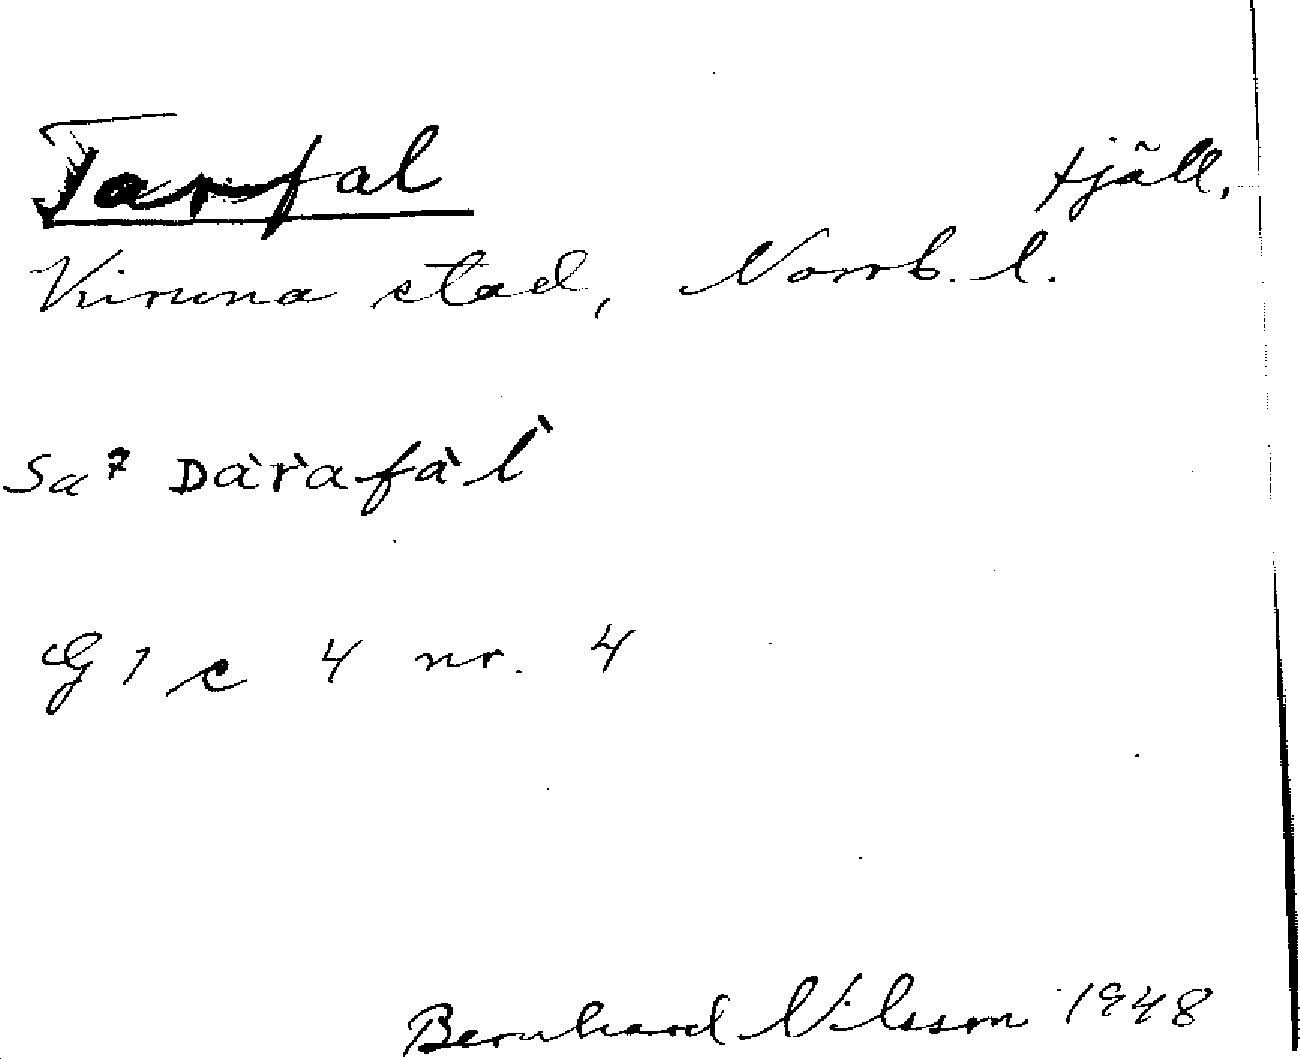 Tarfal fjäll,
Kiruna stad, Norrb. l.
Sa⁷ Dàràfàl̀
G 1 c 4 nr. 4
Bernhard Nilsson 1948